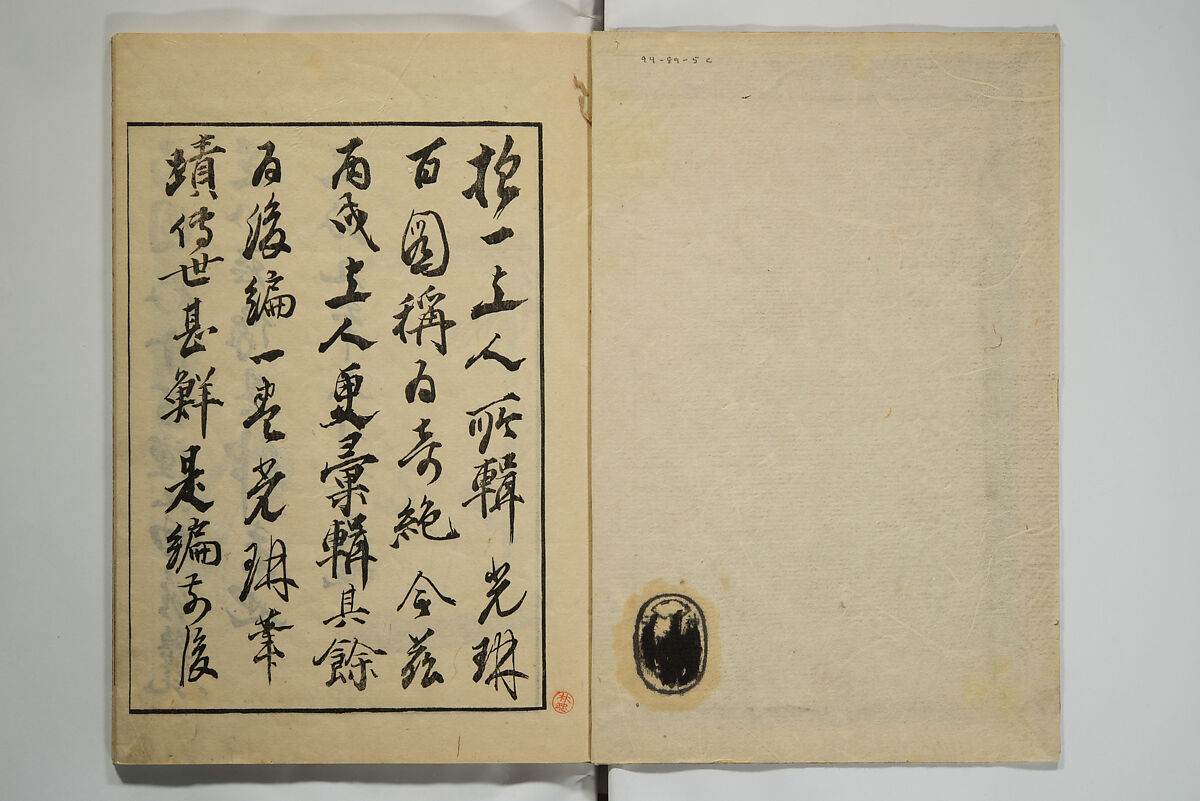 94-89-5 c
抱一上人所輯光琳
百圖稱為奇絶今茲
丙戌上人更彙輯其餘
為後編一表光琳筆
蹟傳世甚鮮是編前後